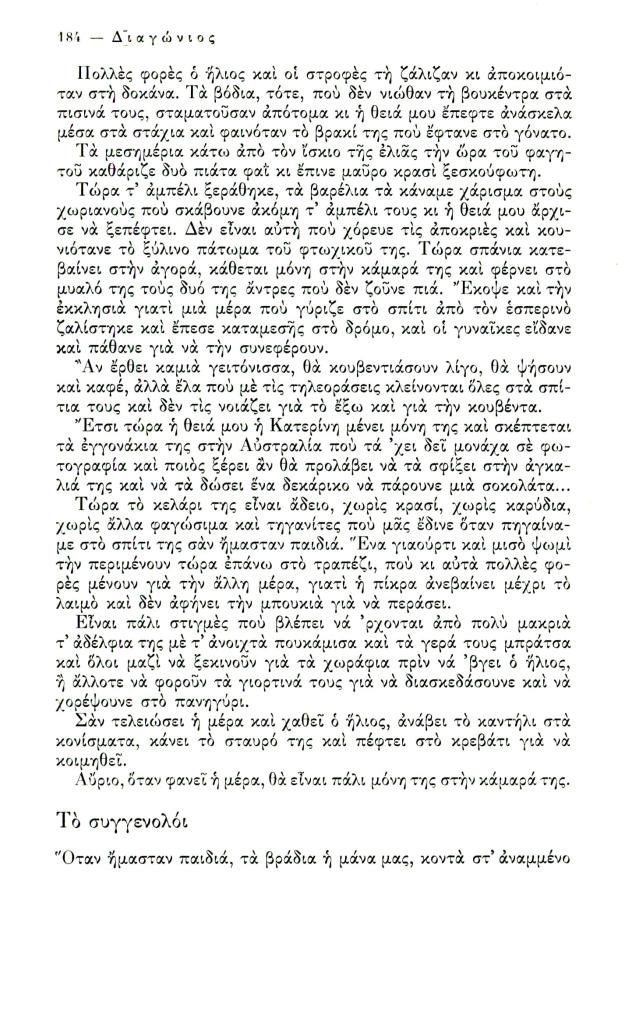 184 — Διαγώνιος
Πολλὲς φορὲς ὁ ἥλιος καὶ οἱ στροφὲς τὴ ζάλιζαν κι ἀποκοιμιό-
ταν στὴ δοκάνα. Τὰ βόδια, τότε, ποὺ δὲν νιώθαν τὴ βουκέντρα στὰ
πισινά τους, σταματοῦσαν ἀπότομα κι ἡ θειά μου ἔπεφτε ἀνάσκελα
μέσα στὰ στάχια καὶ φαινόταν τὸ βρακί της ποὺ ἔφτανε στὸ γόνατο.
Τὰ μεσημέρια κάτω ἀπὸ τὸν ἴσκιο τῆς ἐλιᾶς τὴν ὥρα τοῦ φαγη-
τοῦ καθάριζε δυὸ πιάτα φαῒ κι ἔπινε μαῦρο κρασὶ ξεσκούφωτη.
Τώρα τ' ἀμπέλι ξεράθηκε, τὰ βαρέλια τὰ κάναμε χάρισμα στοὺς
χωριανοὺς ποὺ σκάβουνε ἀκόμη τ' ἀμπέλι τους κι ἡ θειά μου ἄρχι-
σε νὰ ξεπέφτει. Δὲν εἶναι αὐτὴ ποὺ χόρευε τὶς ἀποκριὲς καὶ κου-
νιότανε τὸ ξύλινο πάτωμα τοῦ φτωχικοῦ της. Τώρα σπάνια κατε-
βαίνει στὴν ἀγορά, κάθεται μόνη στὴν κάμαρά της καὶ φέρνει στὸ
μυαλό της τοὺς δυό της ἄντρες ποὺ δὲν ζοῦνε πιά. Ἔκοψε καὶ τὴν
ἐκκλησιὰ γιατὶ μιὰ μέρα ποὺ γύριζε στὸ σπίτι ἀπὸ τὸν ἑσπερινὸ
ζαλίστηκε καὶ ἔπεσε καταμεσῆς στὸ δρόμο, καὶ οἱ γυναῖκες εἴδανε
καὶ πάθανε γιὰ νὰ τὴν συνεφέρουν.
Ἂν ἔρθει καμιὰ γειτόνισσα, θὰ κουβεντιάσουν λίγο, θὰ ψήσουν
καὶ καφέ, ἀλλὰ ἔλα ποὺ μὲ τὶς τηλεοράσεις κλείνονται ὅλες στὰ σπί-
τια τους καὶ δὲν τὶς νοιάζει γιὰ τὸ ἔξω καὶ γιὰ τὴν κουβέντα.
Ἔτσι τώρα ἡ θειά μου ἡ Κατερίνη μένει μόνη της καὶ σκέπτεται
τὰ ἐγγονάκια της στὴν Αὐστραλία ποὺ τά 'χει δεῖ μονάχα σὲ φω-
τογραφία καὶ ποιὸς ξέρει ἂν θὰ προλάβει νὰ τὰ σφίξει στὴν ἀγκα-
λιά της καὶ νὰ τὰ δώσει ἕνα δεκάρικο νὰ πάρουνε μιὰ σοκολάτα...
Τώρα τὸ κελάρι της εἶναι ἄδειο, χωρὶς κρασί, χωρὶς καρύδια,
χωρὶς ἄλλα φαγώσιμα καὶ τηγανίτες ποὺ μᾶς ἔδινε ὅταν πηγαίνα-
με στὸ σπίτι της σὰν ἤμασταν παιδιά. Ἕνα γιαούρτι καὶ μισὸ ψωμὶ
τὴν περιμένουν τώρα ἐπάνω στὸ τραπέζι, ποὺ κι αὐτὰ πολλὲς φο-
ρὲς μένουν γιὰ τὴν ἄλλη μέρα, γιατὶ ἡ πίκρα ἀνεβαίνει μέχρι τὸ
λαιμὸ καὶ δὲν ἀφήνει τὴν μπουκιὰ γιὰ νὰ περάσει.
Εἶναι πάλι στιγμὲς ποὺ βλέπει νά 'ρχονται ἀπὸ πολὺ μακριὰ
τ' ἀδέλφια της μὲ τ' ἀνοιχτὰ πουκάμισα καὶ τὰ γερά τους μπράτσα
καὶ ὅλοι μαζὶ νὰ ξεκινοῦν γιὰ τὰ χωράφια πρὶν νά 'βγει ὁ ἥλιος,
ἢ ἄλλοτε νὰ φοροῦν τὰ γιορτινά τους γιὰ νὰ διασκεδάσουνε καὶ νὰ
χορέψουνε στὸ πανηγύρι.
Σὰν τελειώσει ἡ μέρα καὶ χαθεῖ ὁ ἥλιος, ἀνάβει τὸ καντήλι στὰ
κονίσματα, κάνει τὸ σταυρό της καὶ πέφτει στὸ κρεβάτι γιὰ νὰ
κοιμηθεῖ.
Αὔριο, ὅταν φανεῖ ἡ μέρα, θὰ εἶναι πάλι μόνη της στὴν κάμαρά της.
Τὸ συγγενολόι
Ὅταν ἤμασταν παιδιά, τὰ βράδια ἡ μάνα μας, κοντὰ στ' ἀναμμένο